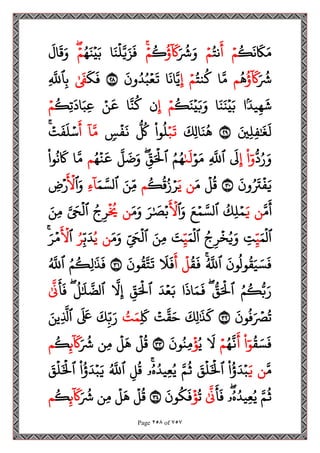 مَكَانَكُمْ أَنتُمْ وَشُرَكَآؤُكُمْ ۚ فَزَيَّلْنَا بَيْنَهُمْ ۖ وَقَالَ
شُرَكَآؤُهُم مَّا كُنتُمْ إِيَّانَا تَعْبُدُونَ ٢٨ فَكَفَىٰ بِٱللَّهِ
شَهِيدًۢا بَيْنَنَا وَبَيْنَكُمْ إِن كُنَّا عَنْ عِبَادَتِكُمْ
لَغَـٰفِلِينَ ٢٩ هُنَالِكَ تَبْلُوا۟ كُلُّ نَفْسٍ مَّآ أَسْلَفَتْ ۚ
وَرُدُّوٓا۟ إِلَى ٱللَّهِ مَوْلَىٰهُمُ ٱلْحَقِّ ۖ وَضَلَّ عَنْهُم مَّا كَانُوا۟
يَفْتَرُونَ ٣٠ قُلْ مَن يَرْزُقُكُم مِّنَ ٱلسَّمَآءِ وَٱلْأَرْضِ
أَمَّن يَمْلِكُ ٱلسَّمْعَ وَٱلْأَبْصَـٰرَ وَمَن يُخْرِجُ ٱلْحَىَّ مِنَ
ٱلْمَيِّتِ وَيُخْرِجُ ٱلْمَيِّتَ مِنَ ٱلْحَىِّ وَمَن يُدَبِّرُ ٱلْأَمْرَ ۚ
فَسَيَقُولُونَ ٱللَّهُ ۚ فَقُلْ أَفَلَا تَتَّقُونَ ٣١ فَذَٰلِكُمُ ٱللَّهُ
رَبُّكُمُ ٱلْحَقُّ ۖ فَمَاذَا بَعْدَ ٱلْحَقِّ إِلَّا ٱلضَّلَـٰلُ ۖ فَأَنَّىٰ
تُصْرَفُونَ ٣٢ كَذَٰلِكَ حَقَّتْ كَلِمَتُ رَبِّكَ عَلَى ٱلَّذِينَ
فَسَقُوٓا۟ أَنَّهُمْ لَا يُؤْمِنُونَ ٣٣ قُلْ هَلْ مِن شُرَكَآئِكُم
مَّن يَبْدَؤُا۟ ٱلْخَلْقَ ثُمَّ يُعِيدُهُۥ ۚ قُلِ ٱللَّهُ يَبْدَؤُا۟ ٱلْخَلْقَ
ثُمَّ يُعِيدُهُۥ ۖ فَأَنَّىٰ تُؤْفَكُونَ ٣٤ قُلْ هَلْ مِن شُرَكَآئِكُم
Page ٢٥٨ of ٧٥٧